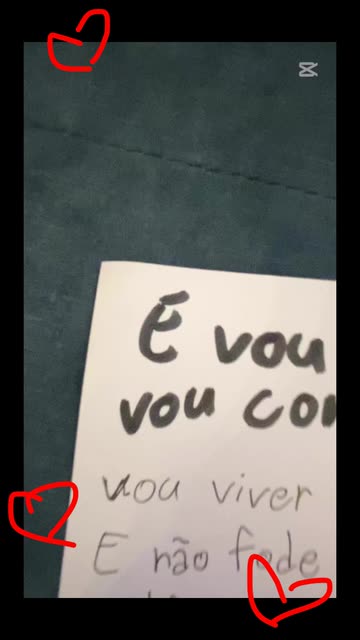 É vou
vou con
vou viver
E não fode